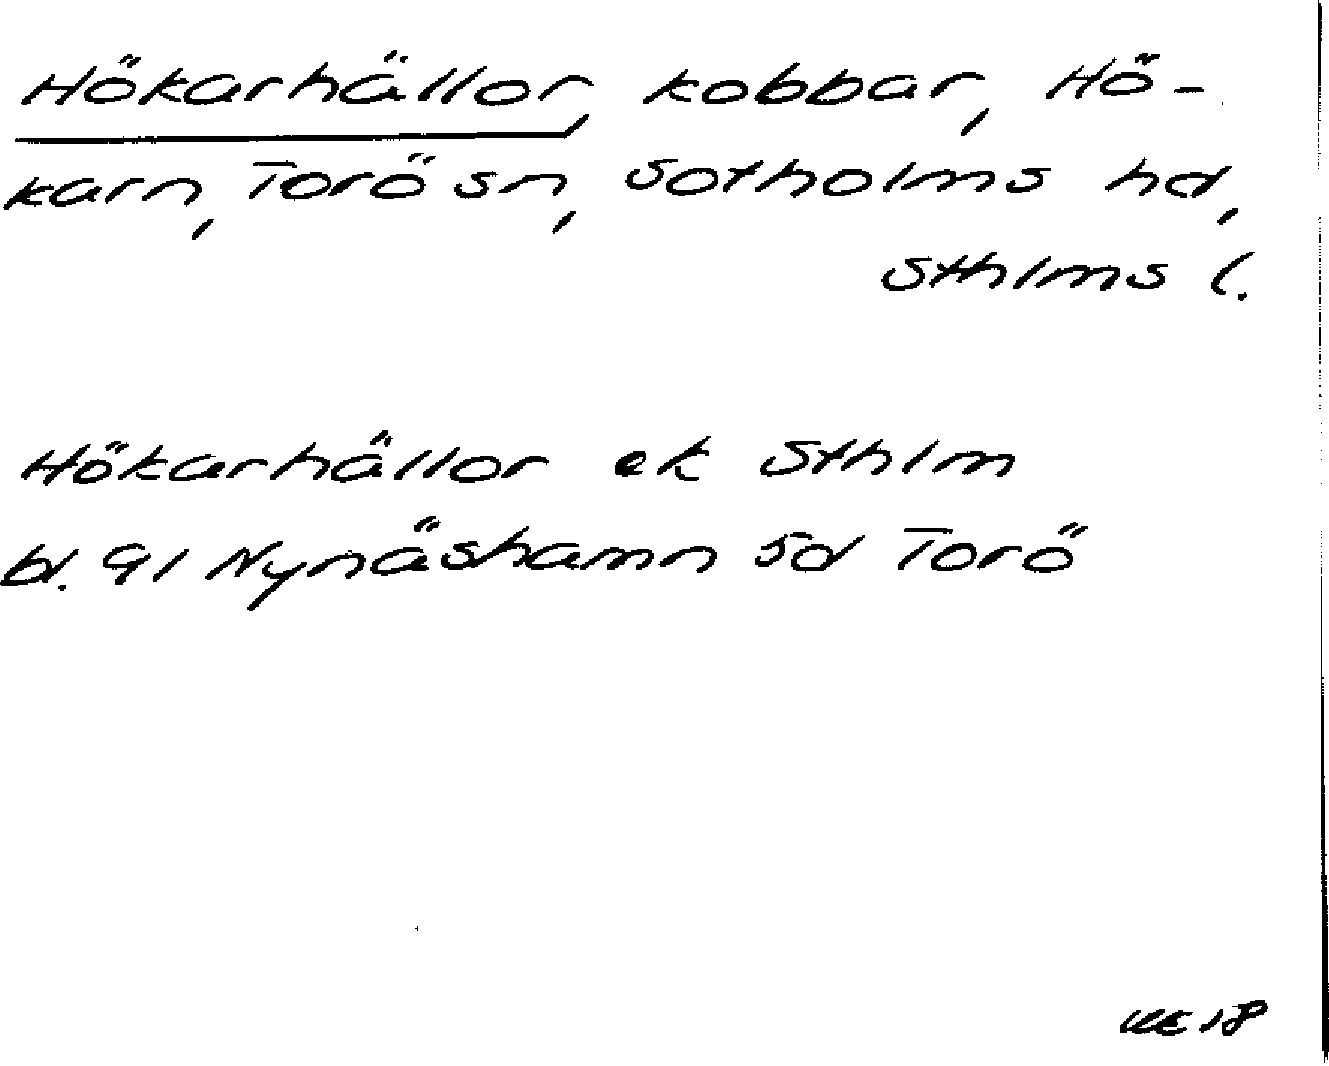 Hökarhällor, kobbar, Hö-
karn, Torö sn, Sotholms hd,
Sthlms l.
Hökarhällor ek Sthlm
bl. 91 Nynäshamn Sd Torö